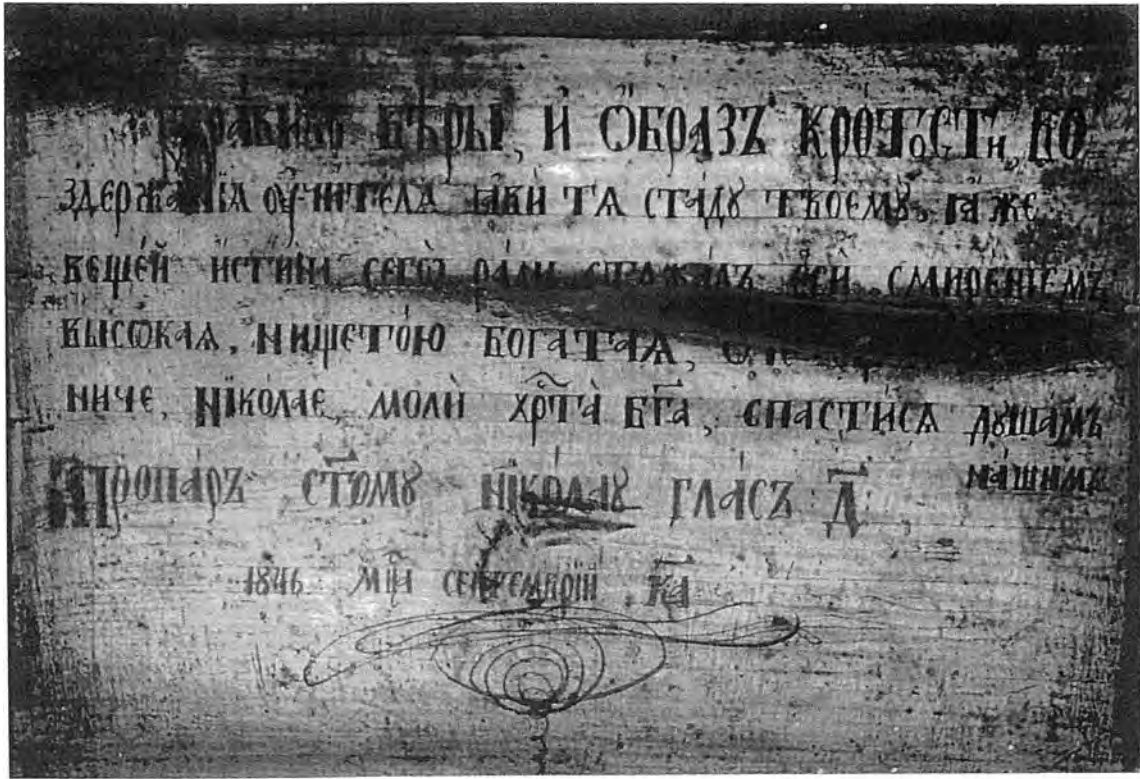 Правило вѣры, и ѿбразъ кротости, во
здержанїѧ оучителѧ ꙗви тѧ стаду твоему, ꙗже
вещей истини сегѡ ради стѧжалъ еси смиренїемъ
высѡкаѧ, нищетою богатаѧ,
ниче, Нїколае, моли хр҃та бг҃а, спастисѧ душамъ
нашимъ
Тропаръ ст҃ому Нїколау гласъ д҃
1846 мц҃а септемврїи к҃а